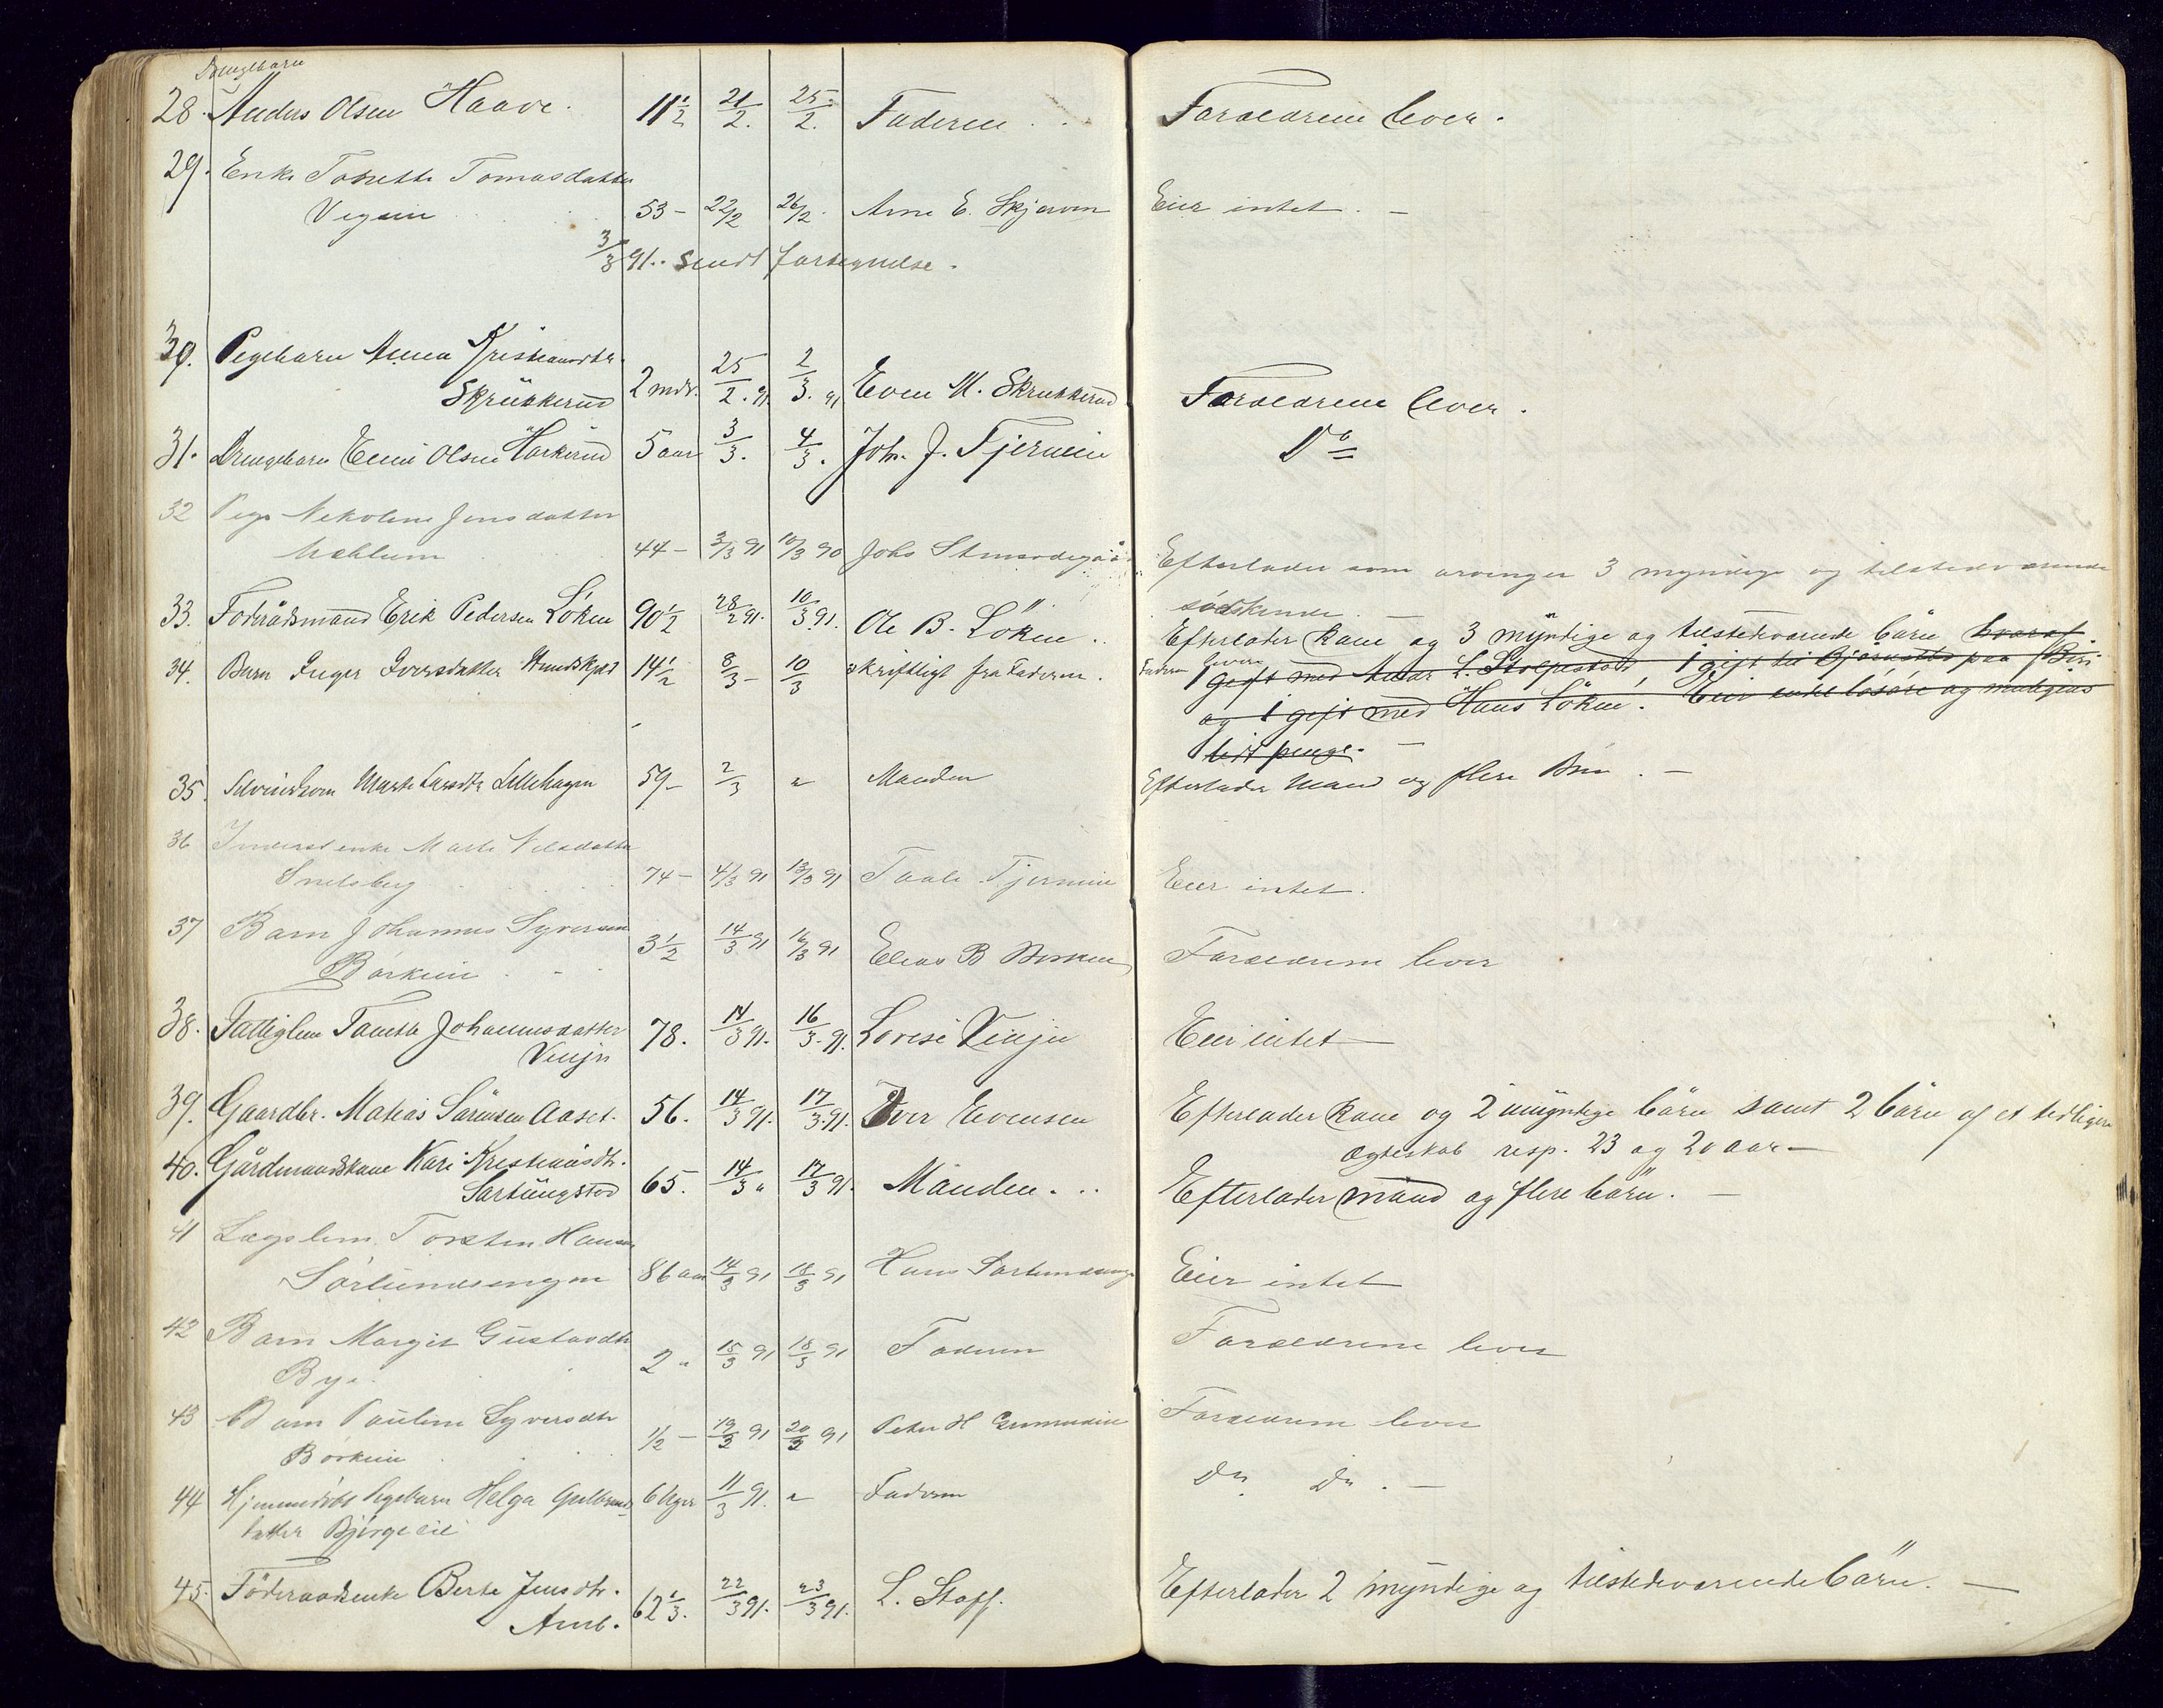 Drengebarn
28. Anders Olsen Haave. 11½ 21/2. 25/2. Faderen . . Forældrene lever.
29. Enke Tomasdatter
53 – 22/2 26/2. Arne E. Skjerven Eier intet. –
3/3 91. sendt fortegnelse.
30. Pigebarn Anna Kristiansdtr.
Skrukkerud 2 mdr. 25/2. 91 2/3. 91 Even M. Skrukkerud Forældrene lever.
31. Drengebarn Emil Olsen 5 aar 3/3. 4/3. Joh. J. Tjernein Do
32 Pige Nekoline Jensdatter
Mæhlum 44 – 3/3 91 10/3 90 Johs Efterlader som arvinger 3 myndige og tilstedeværende
sødskende. –
33. Föderådsmand Erik Pedersen Löken 90½ 28/2 91. 10/3 91. Ole B. Löken .. Efterlader kone og 3 myndige og tilstedeværende börn hvoraf
34. Barn Inger Iversdatter 14½ 8/3 – 10/3 skriftligt fra Faderen. Faderen lever
1 gift med L. Stolpestad, 1 gift til paa Biri
og 1 gift med Hans Löken. Eier endel lösöre og muligens
lidt penge. –
35. Marte Larsdtr Lillehagen 59 – 2/3 " Manden Efterlader Mand og flere Børn. –
36 Inderst enke Marte Nilsdatter
Snelsberg 74 – 4/3 91 13/3 91 Taale Tjernein Eier intet.
37 Barn Johannes Syversen
Börkein 3½ 14/3 91 16/3 91 Elias B Forældrene lever
38. Fattiglem Johannesdatter
Vinju 78. 14/3 91. 16/3. 91. Lovise Vinju Eier intet –
39. Gaardbr. Matias Sörensen Aaset. 56. 14/3 91. 17/3. 91. Iver Evensen Efterlader kone og 2 umyndige börn samt 2 börn af et tidligere
ægteskab resp. 23 og 20 aar –
40. Gårdmandskone Kari Kristiansdtr.
65. 14/3 " 17/3 91. Manden. .. Efterlader mand og flere börn. –
41 Lægslem Torsten Hansen
Sörlundsengen 86 aar 14/3 91 18/3 91 Hans Eier intet
42 Barn Margit Gustavdtr
Bye. 2 " 15/3 91 18/3 91 Faderen Forældrene lever
43 Barn Pauline Syversdtr
Börkein ½ – 19/3 91 20/3 91 Peter H Forældrene lever
44 Hjemmedöbt Pigebarn Helga Gulbrands
datter 6 Uger 11/3 91. " Faderen Do Do. –
45. Föderaadsenke Berte Jensdtr.
62⅓. 22/3 91. 23/3 91. L. Staff. Efterlader 2 myndige og tilstedeværende börn. –